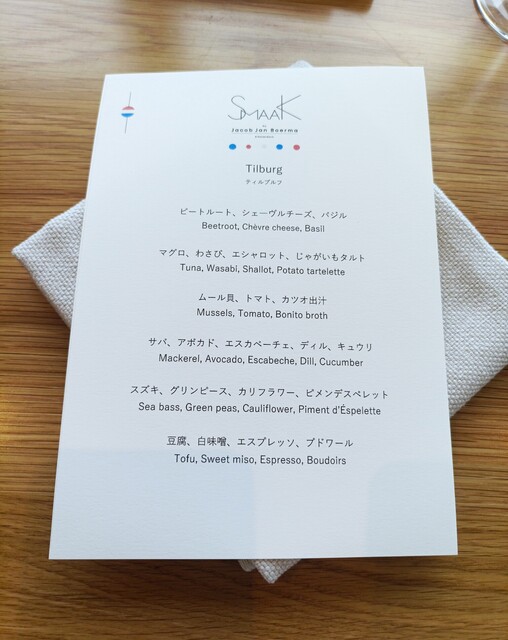 SMAAK
by
Jacob Jan Boerma
Tilburg
ティルブルフ
ビートルート、シェーヴルチーズ、バジル
Beetroot, Chèvre cheese, Basil
マグロ、わさび、エシャロット、じゃがいもタルト
Tuna, Wasabi, Shallot, Potato tartelette
ムール貝、トマト、カツオ出汁
Mussels, Tomato, Bonito broth
サバ、アボカド、エスカベーチェ、ディル、キュウリ
Mackerel, Avocado, Escabeche, Dill, Cucumber
スズキ、グリンピース、カリフラワー、ピメンデスペレット
Sea bass, Green peas, Cauliflower, Piment d'Éspelette
豆腐、白味噌、エスプレッソ、ブドワール
Tofu, Sweet miso, Espresso, Boudoirs